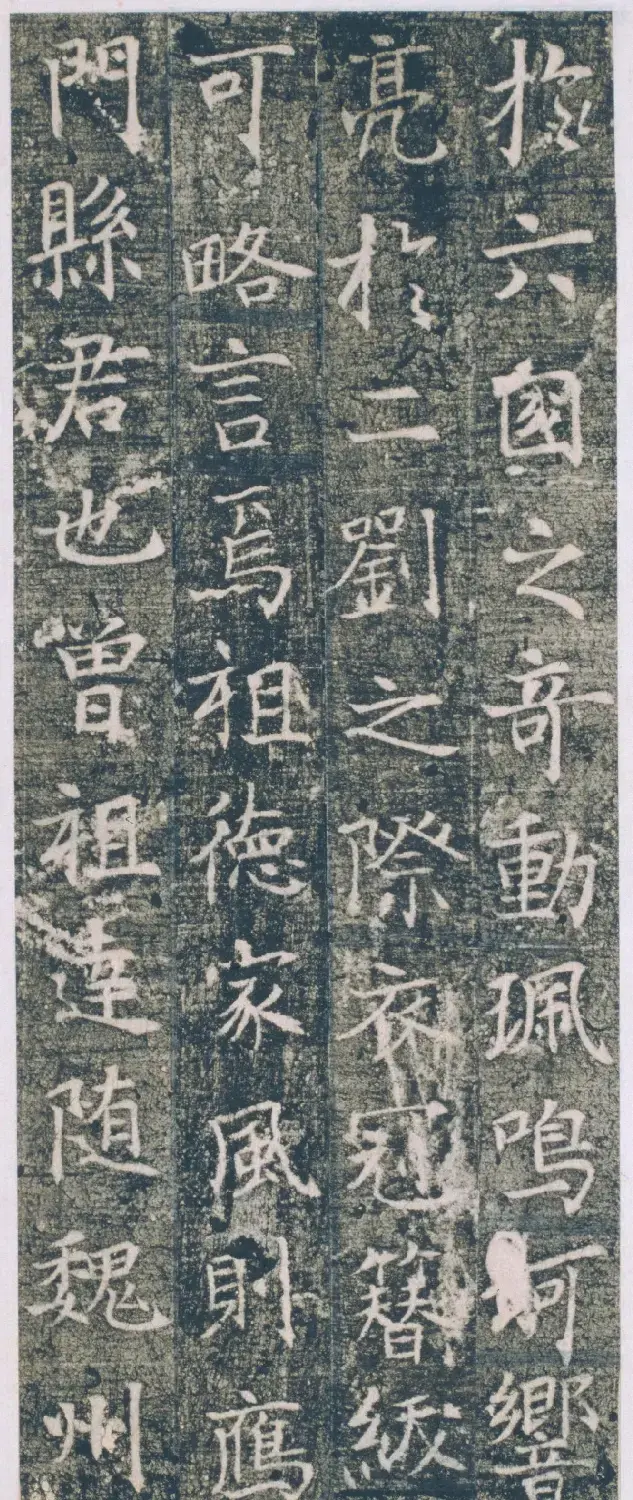 於六國之竒動珮鳴珂響
亮於二劉之際衣冠簪紱
可略言焉祖德家風則鴈
門縣君也曾祖達随魏州